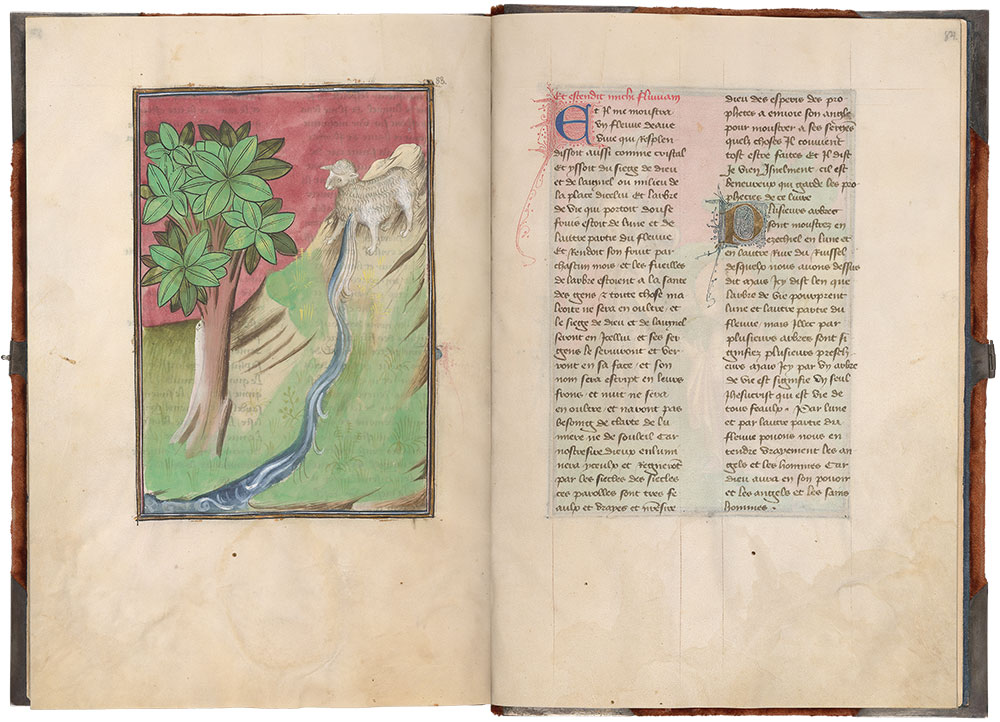 83.
84
Et ostendit michi fluvium
Et Il me moustra
un fleuve deaue
vive qui resplen
dissoit aussi comme cristal
et yssoit du siege de dieu
et de laignel ou milieu de
la place dicellui Et larbre
de vie qui portoit douse
fruis estoit de lune et de
lautre partie du fleuve
Et rendoit son fruit par
chascun mois et les fueilles
de larbre estoient a la sante
des gens et toute chose ma
loite ne sera en oultre et
le siege de dieu et de laignel
seront en Icellui et ses ser
gens le serviront et ver
ront en sa face et son
nom sera escript en leurs
frons et nuit ne sera
en oultre et navront pas
besoing de clarte de lu
miere ne de souleil Car
nostresire dieux enlumi
nera yceulx et Regneront
par les siecles des siecles
ces parolles sont tres fe
aulx et vrayes et nostre
dieu des esperis des pro
phetes a envoye son angle
pour moustrer a ses sergens
quels choses Il couvient
tost estre faites et Il dist
Je vien Isnelment cil est
beneureux qui garde les pro
pheties de ce livre
Plusieurs arbres
sont moustres en
ezechiel en lune et
en lautre Rive du Ruissel
desquels nous avons dessus
dit Mais Icy dist len que
larbre de vie pourprent
lune et lautre partie du
fleuve mais Illec par
plusieurs arbres sont si
gnifiez plusieurs presch
eurs Mais Icy par un arbre
de vie est signifie un seul
Jhesucrist qui est vie de
tous feaulx . Par lune
et par lautre partie du
fleuve povons nous en
tendre vrayement les an
gels et les hommes Car
dieu aura en son povoir
et les angels et les sains
hommes .